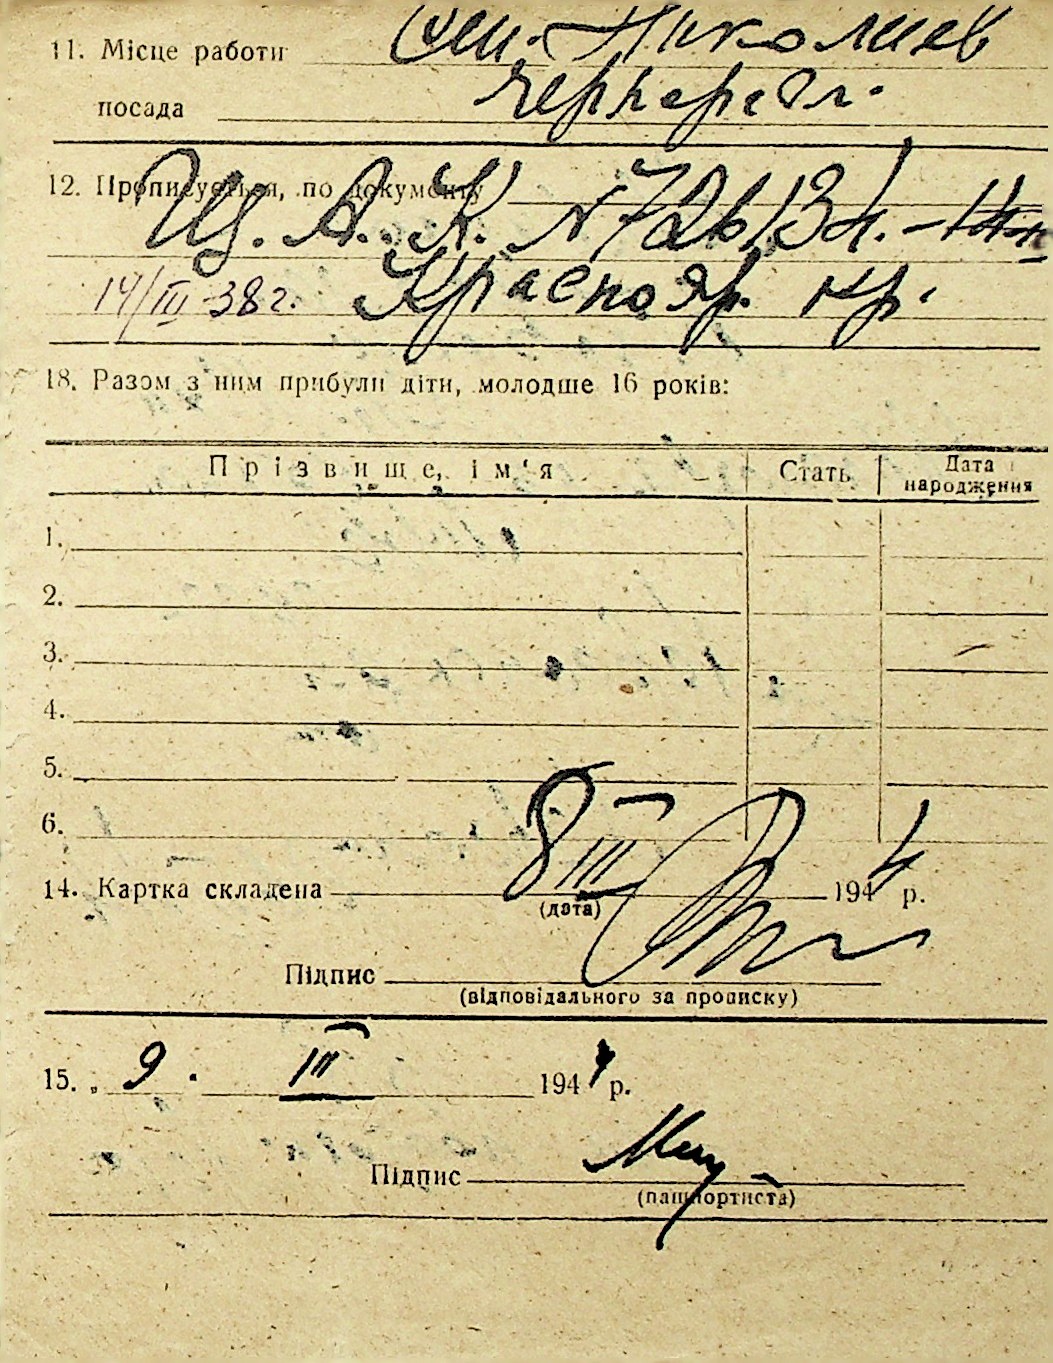 11. Місце работи Николаев
посада
12. Прописується, по документу
Щ. А. К. N 726134.
14/III 38 г. Краснояр. кр.
18. Разом з ним прибули діти, молодше 16 років:
Прізвище, ім'я Стать Дата народження
1.
2.
3.
4.
5.
6.
14. Картка складена 8 III 1944 р.
(дата)
Підпис
(відповідального за прописку)
15. „ 9. III 1944 р.
Підпис
(паспортиста)